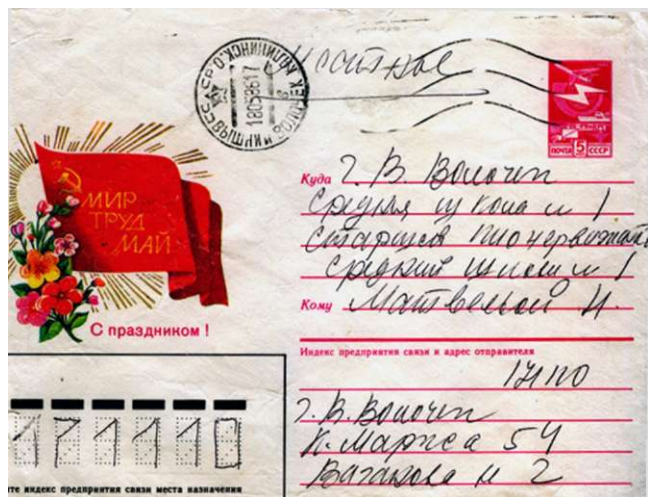 местное
18058617
ПОЧТА 5 СССР
МИР
ТРУД
МАЙ
С праздником!
Куда г. В. Волочек
Средняя школа н 1
Старшей пионервожатой
средней школы н 1
Кому Матвеевой Н.
Индекс предприятия связи и адрес отправителя
171110
г. В. Волочек
К. Маркса 54
н 2
171110
те индекс предприятия связи места назначения